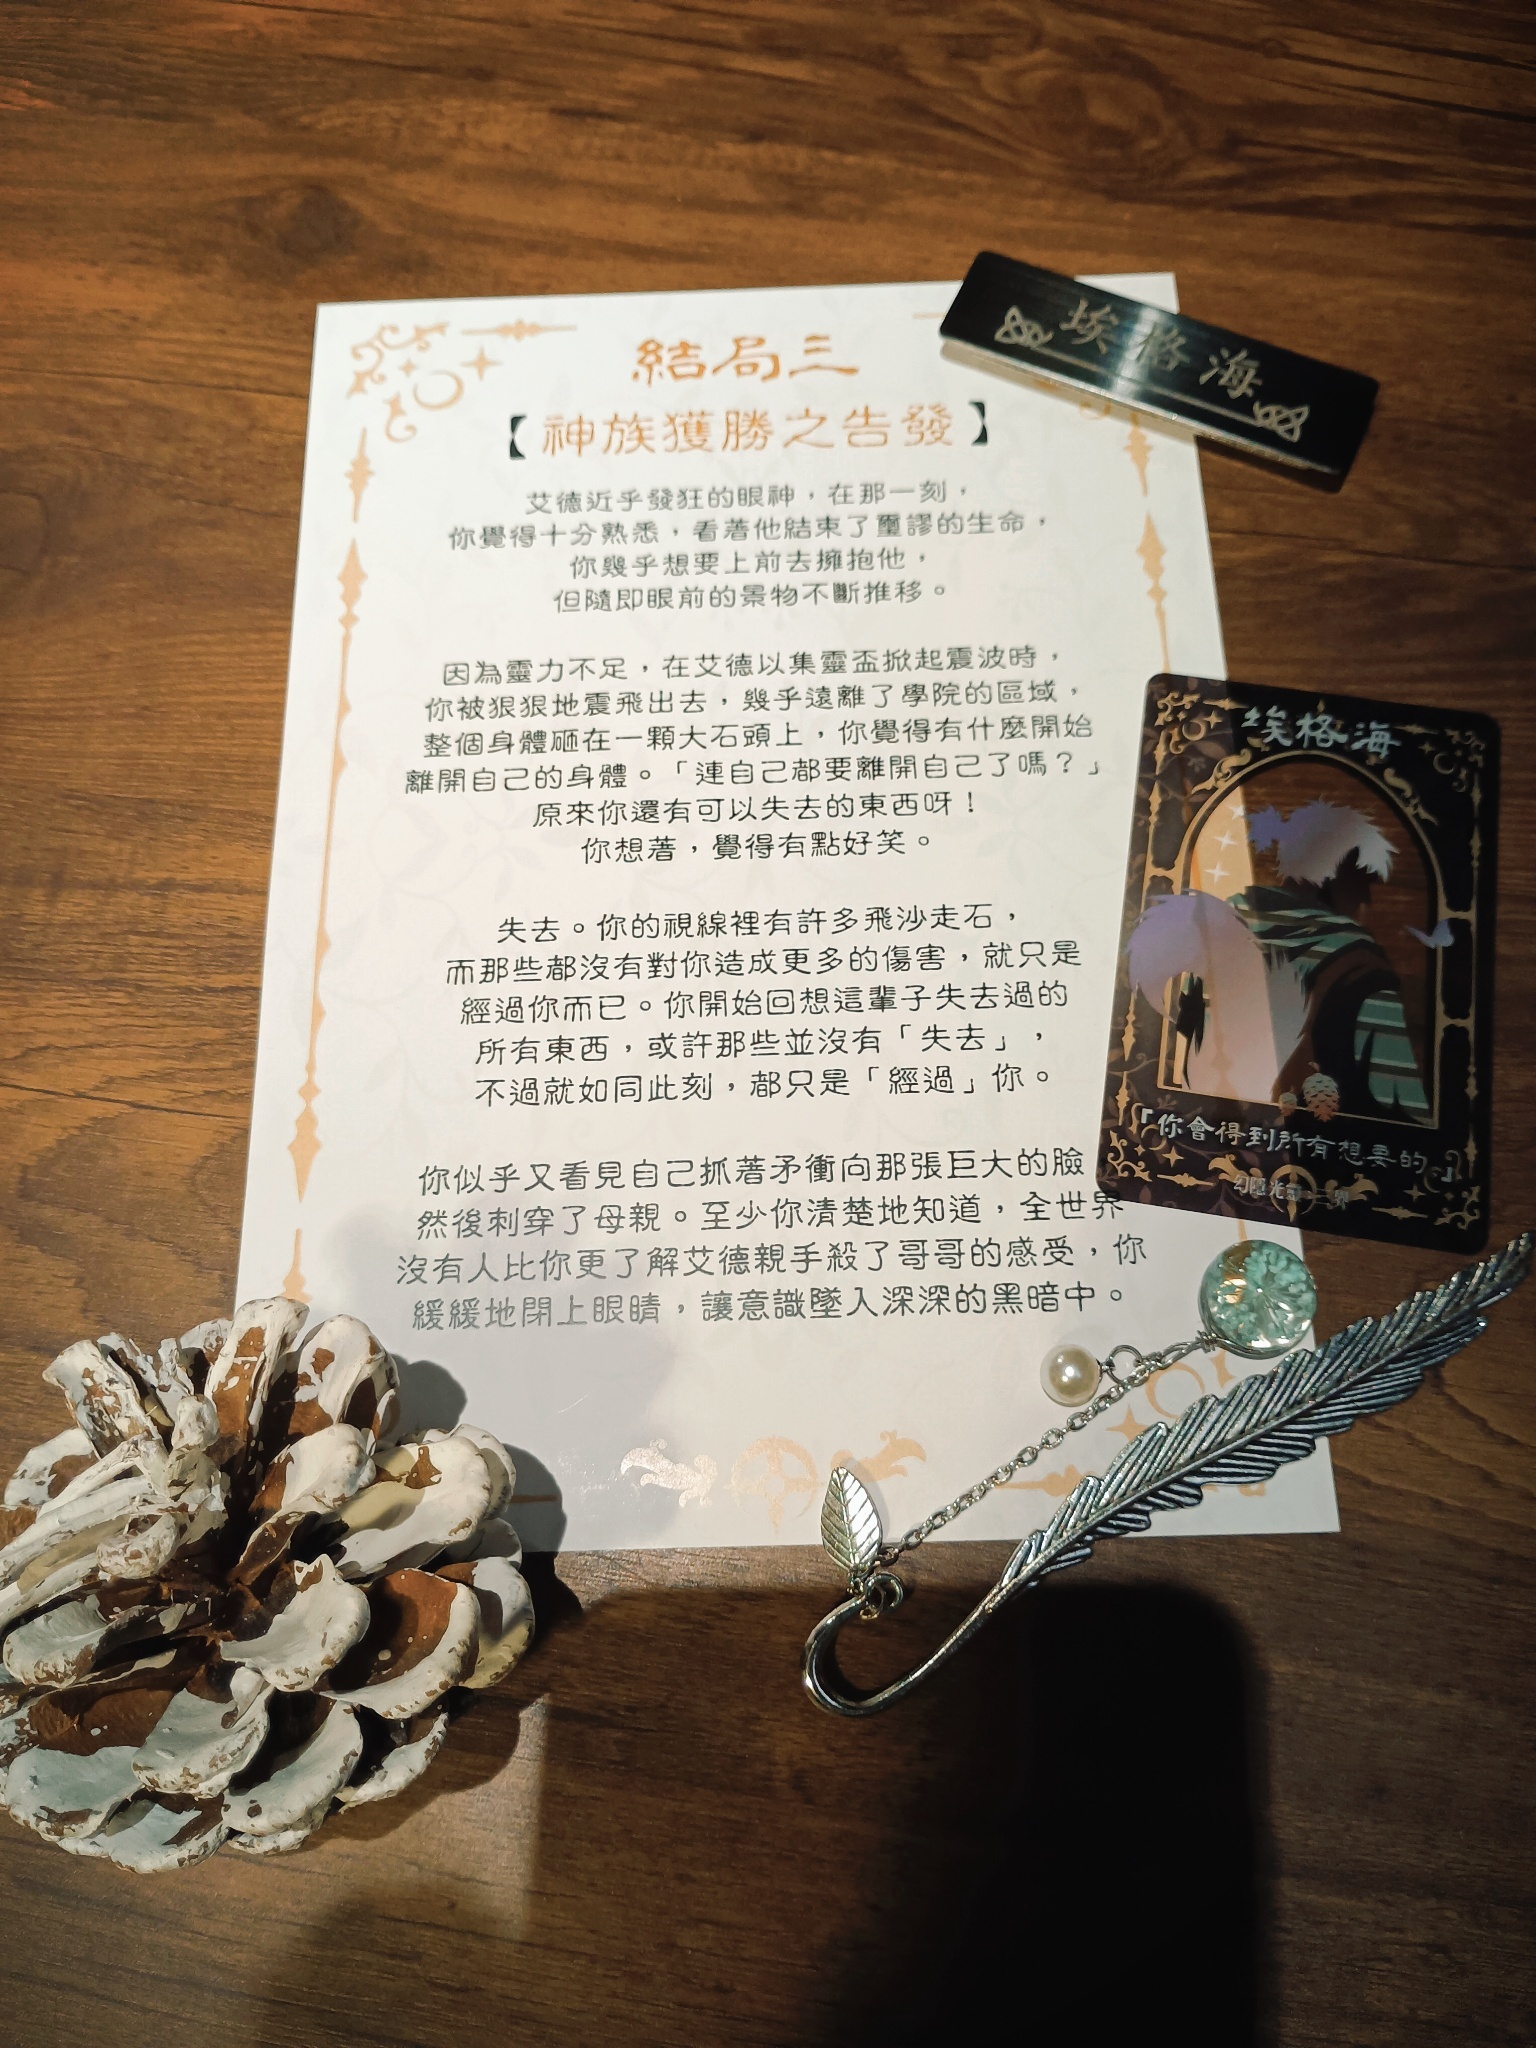 結局三
【神族獲勝之告發】
埃格海
艾德近乎發狂的眼神，在那一刻，
你覺得十分熟悉，看著他結束了璽謬的生命，
你幾乎想要上前去擁抱他，
但隨即眼前的景物不斷推移。
因為靈力不足，在艾德以集靈盃掀起震波時，
你被狠狠地震飛出去，幾乎遠離了學院的區域，
整個身體砸在一顆大石頭上，你覺得有什麼開始
離開自己的身體。「連自己都要離開自己了嗎？」
原來你還有可以失去的東西呀！
你想著，覺得有點好笑。
失去。你的視線裡有許多飛沙走石，
而那些都沒有對你造成更多的傷害，就只是
經過你而已。你開始回想這輩子失去過的
所有東西，或許那些並沒有「失去」，
不過就如同此刻，都只是「經過」你。
你似乎又看見自己抓著矛衝向那張巨大的臉
然後刺穿了母親。至少你清楚地知道，全世界
沒有人比你更了解艾德親手殺了哥哥的感受，你
緩緩地閉上眼睛，讓意識墜入深深的黑暗中。
埃格海
「你會得到所有想要的。」